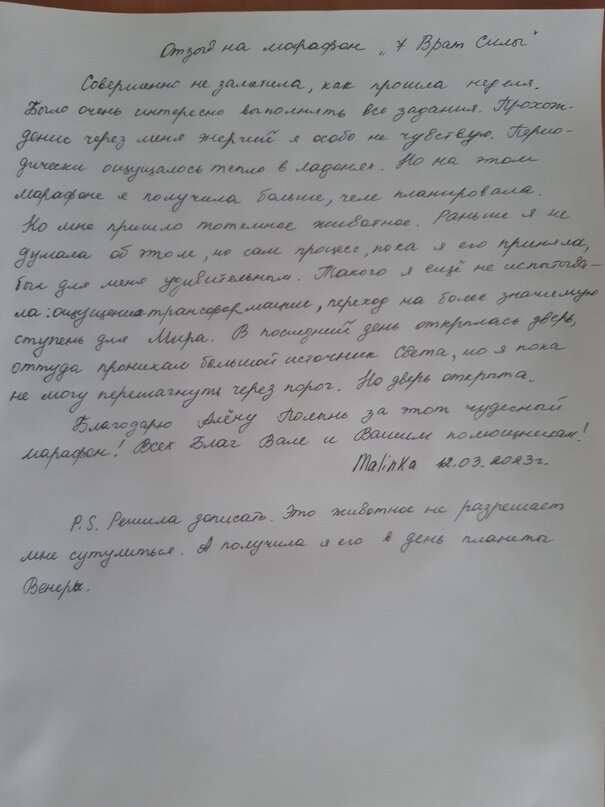 Отзыв на марафон „7 Врат Силы"
Совершенно не заметила, как прошла неделя.
Было очень интересно выполнять все задания. Прохож-
дение через меня энергий я особо не чувствую. Перио-
дически ощущалось тепло в ладонях. Но на этом
марафоне я получила больше, чем планировала.
Ко мне пришло тотемное животное. Раньше я не
думала об этом, но сам процесс, пока я его приняла,
был для меня удивительным. Такого я ещё не испытыва-
ла: ощущение трансформации, переход на более значимую
ступень для Мира. В последний день открылась дверь,
оттуда проникал большой источник Света, но я пока
не могу перешагнуть через порог. Но дверь открыта..
Благодарю Алёну Полынь за этот чудесный
марафон! Всех Благ Вам и Вашим помощникам!
Malinka 12.03.2023г.
P.S. Решила дописать. Это животное не разрешает
мне сутулиться. А получила я его в день планеты
Венеры.